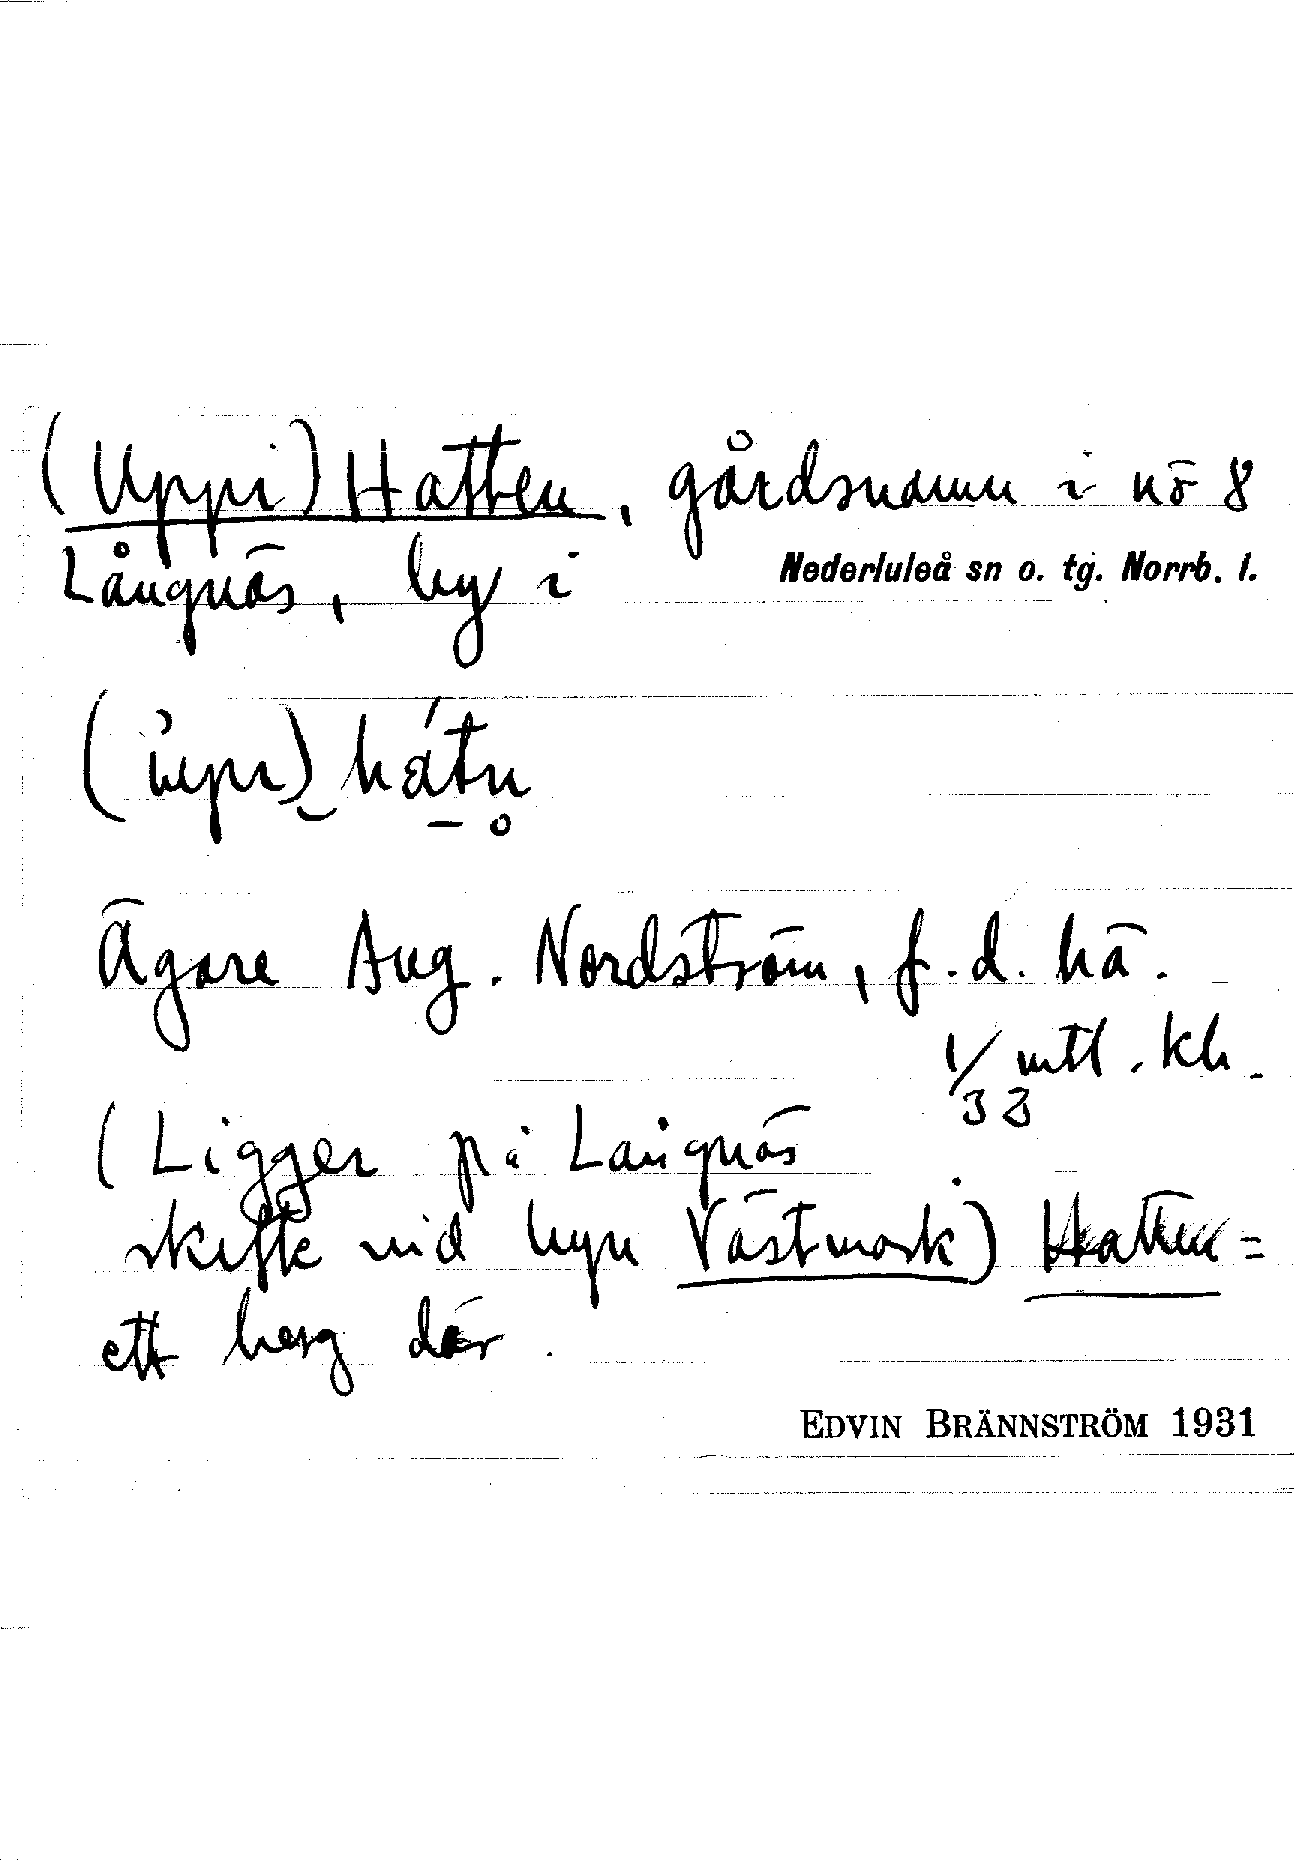 (Uppi) Hatten, gårdsnamn i nö 8
Långnäs, by i Nederluleå sn o. tg. Norrb. l.
(ùpi)‿hátn̥
Ägare Aug. Nordström, f.d. hä.
1/32 mtl. kh.
(Ligger på Långnäs
skifte vid byn Västmark) Hatten =
ett berg där.
EDVIN BRÄNNSTRÖM 1931